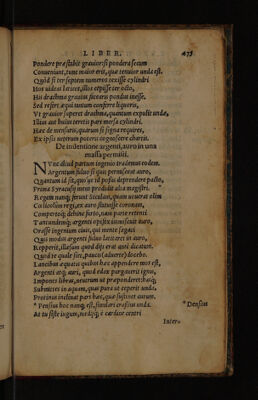 LIBER. 475
Pondere præstabit grauior: si pondera secum
Conueniant, tunc maior erit, quæ tenuior unda est.
Quod si ter septem numeros texisse cylindri
Hos uideas latices, illos cepisse ter octo,
His drachma grauius fatearis pondus inesse.
Sed refert, æqui tantum conferre liquoris,
Vt grauior superet drachma, quantum expulit undæ,
Illius aut huius teretis pars mersa cylindri.
Hæc de mensuris, quarum si signa requires,
Ex ipsis ueterum poteris cognoscere chartis.
De inuentione argenti, auro in una
massa permixti.
NVnc aliud partum ingenio trademus eodem.
Argentum fuluo si quis permisceat auro,
Quantum id sit, quoue id possis deprendere pacto,
Prima Syracusij mens prodidit alta magistri.
Regem nanque ferunt Siculum, quam uouerat olim
Cælicolum regi, ex auro statuisse coronam,
Compertoque dehinc furto, nam parte retenta
Tantundem argenti opifex immiscuit auro,
Orasse ingenium ciuis, qui mente sagaci
Quis modus argenti fuluo latitaret in auro,
Repperit, illæsum quod dijs erat ante dicatum.
Quod te quale siet, paucis (aduerte) docebo.
Lancibus æquatis quibus hæc appendere mos est,
Argenti atque auri, quod edax purgauerit ignis,
Impones libras, neutrum ut præponderet: hasque
Submittes in aquam, quas pura ut ceperit unda.
Protinus inclinat pars hæc, quæ sustinet aurum.
* Pensius hoc nanque est, simul crassius unda.
* Densius
At tu siste iugum, mediique è cardine centri
Inter-